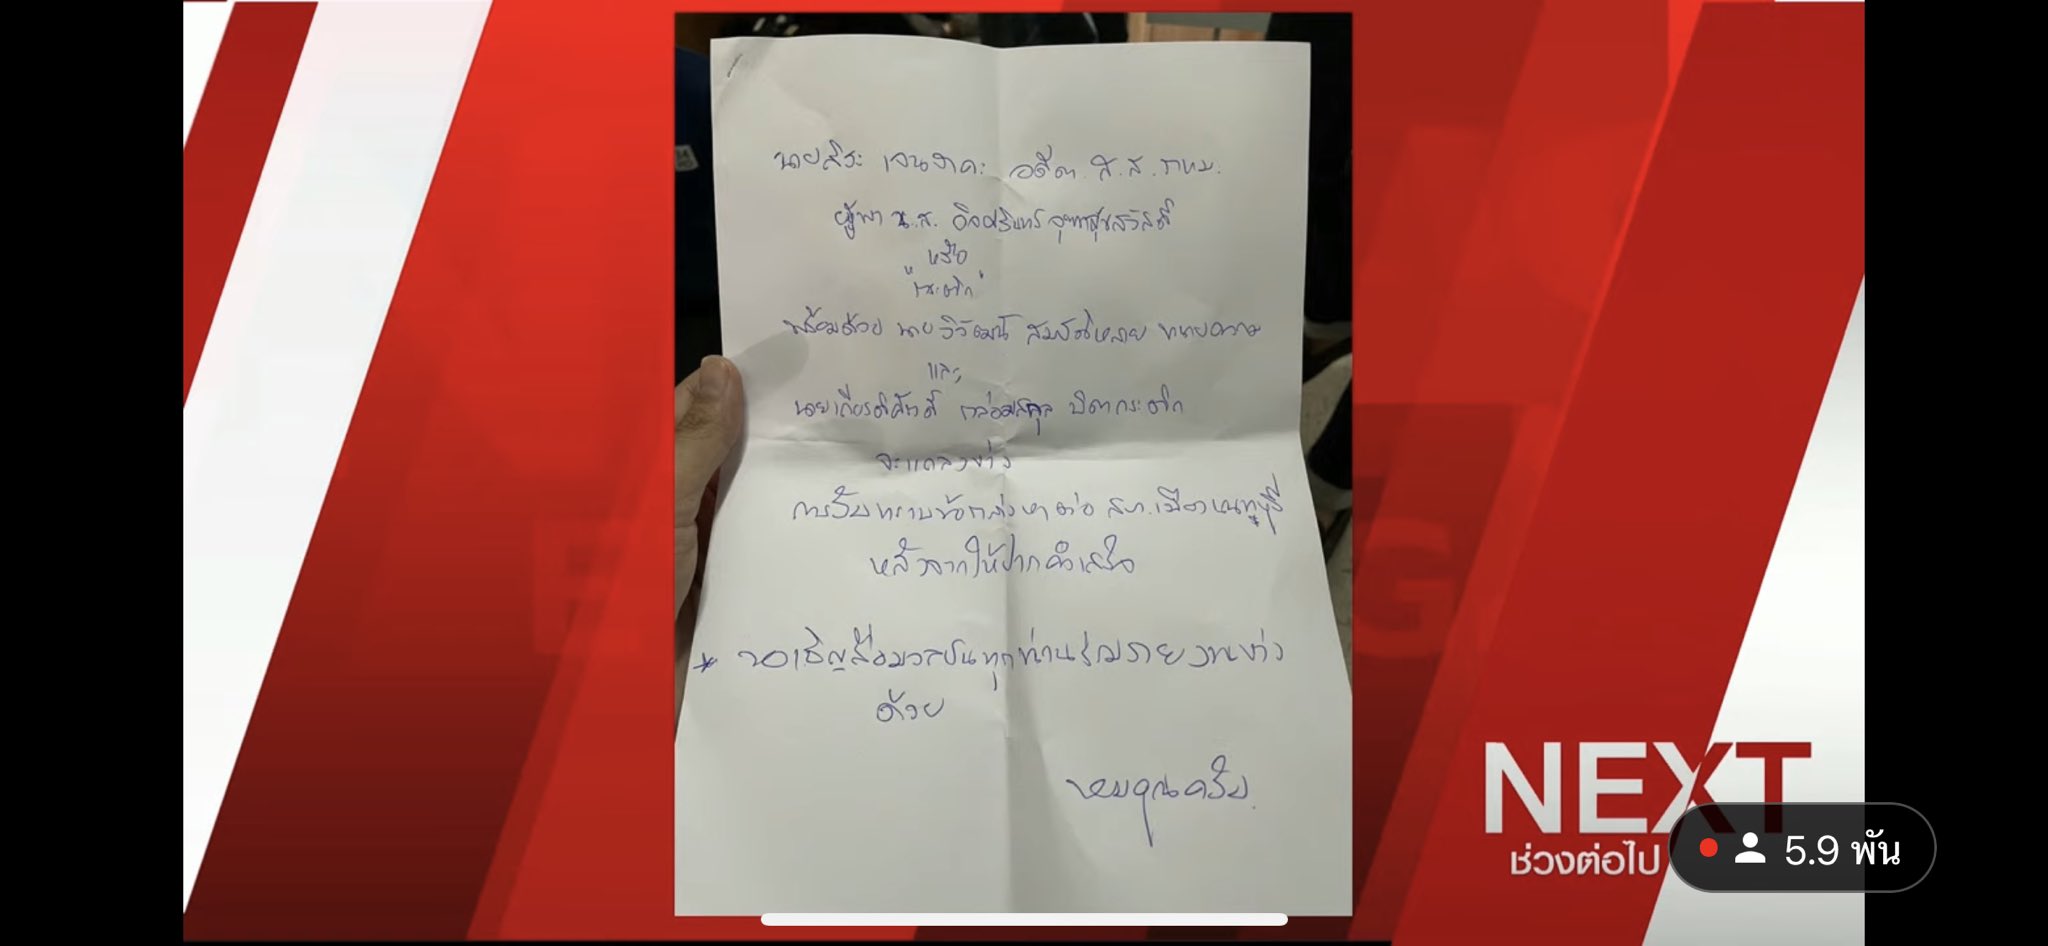 นายสิระ เจนจาคะ อดีต ส.ส. กทม.
ผู้พา น.ส. อิจศรินทร์ จุฑาสุขสวัสดิ์
หรือ
"กระติก"
พร้อมด้วย นายวิวัฒน์ สมบัติหลาย ทนายความ
และ
นายเกียรติศักดิ์ กล่อมสกุล บิดากระติก
จะแถลงข่าว
การรับทราบข้อกล่าวหาต่อ สภ.เมืองนนทบุรี
หลังจากให้ปากคำเสร็จ
* ขอเชิญสื่อมวลชนทุกท่านร่วมรายงานข่าว
ด้วย
ขอบคุณครับ
NEXT
ช่วงต่อไป
5.9 พัน